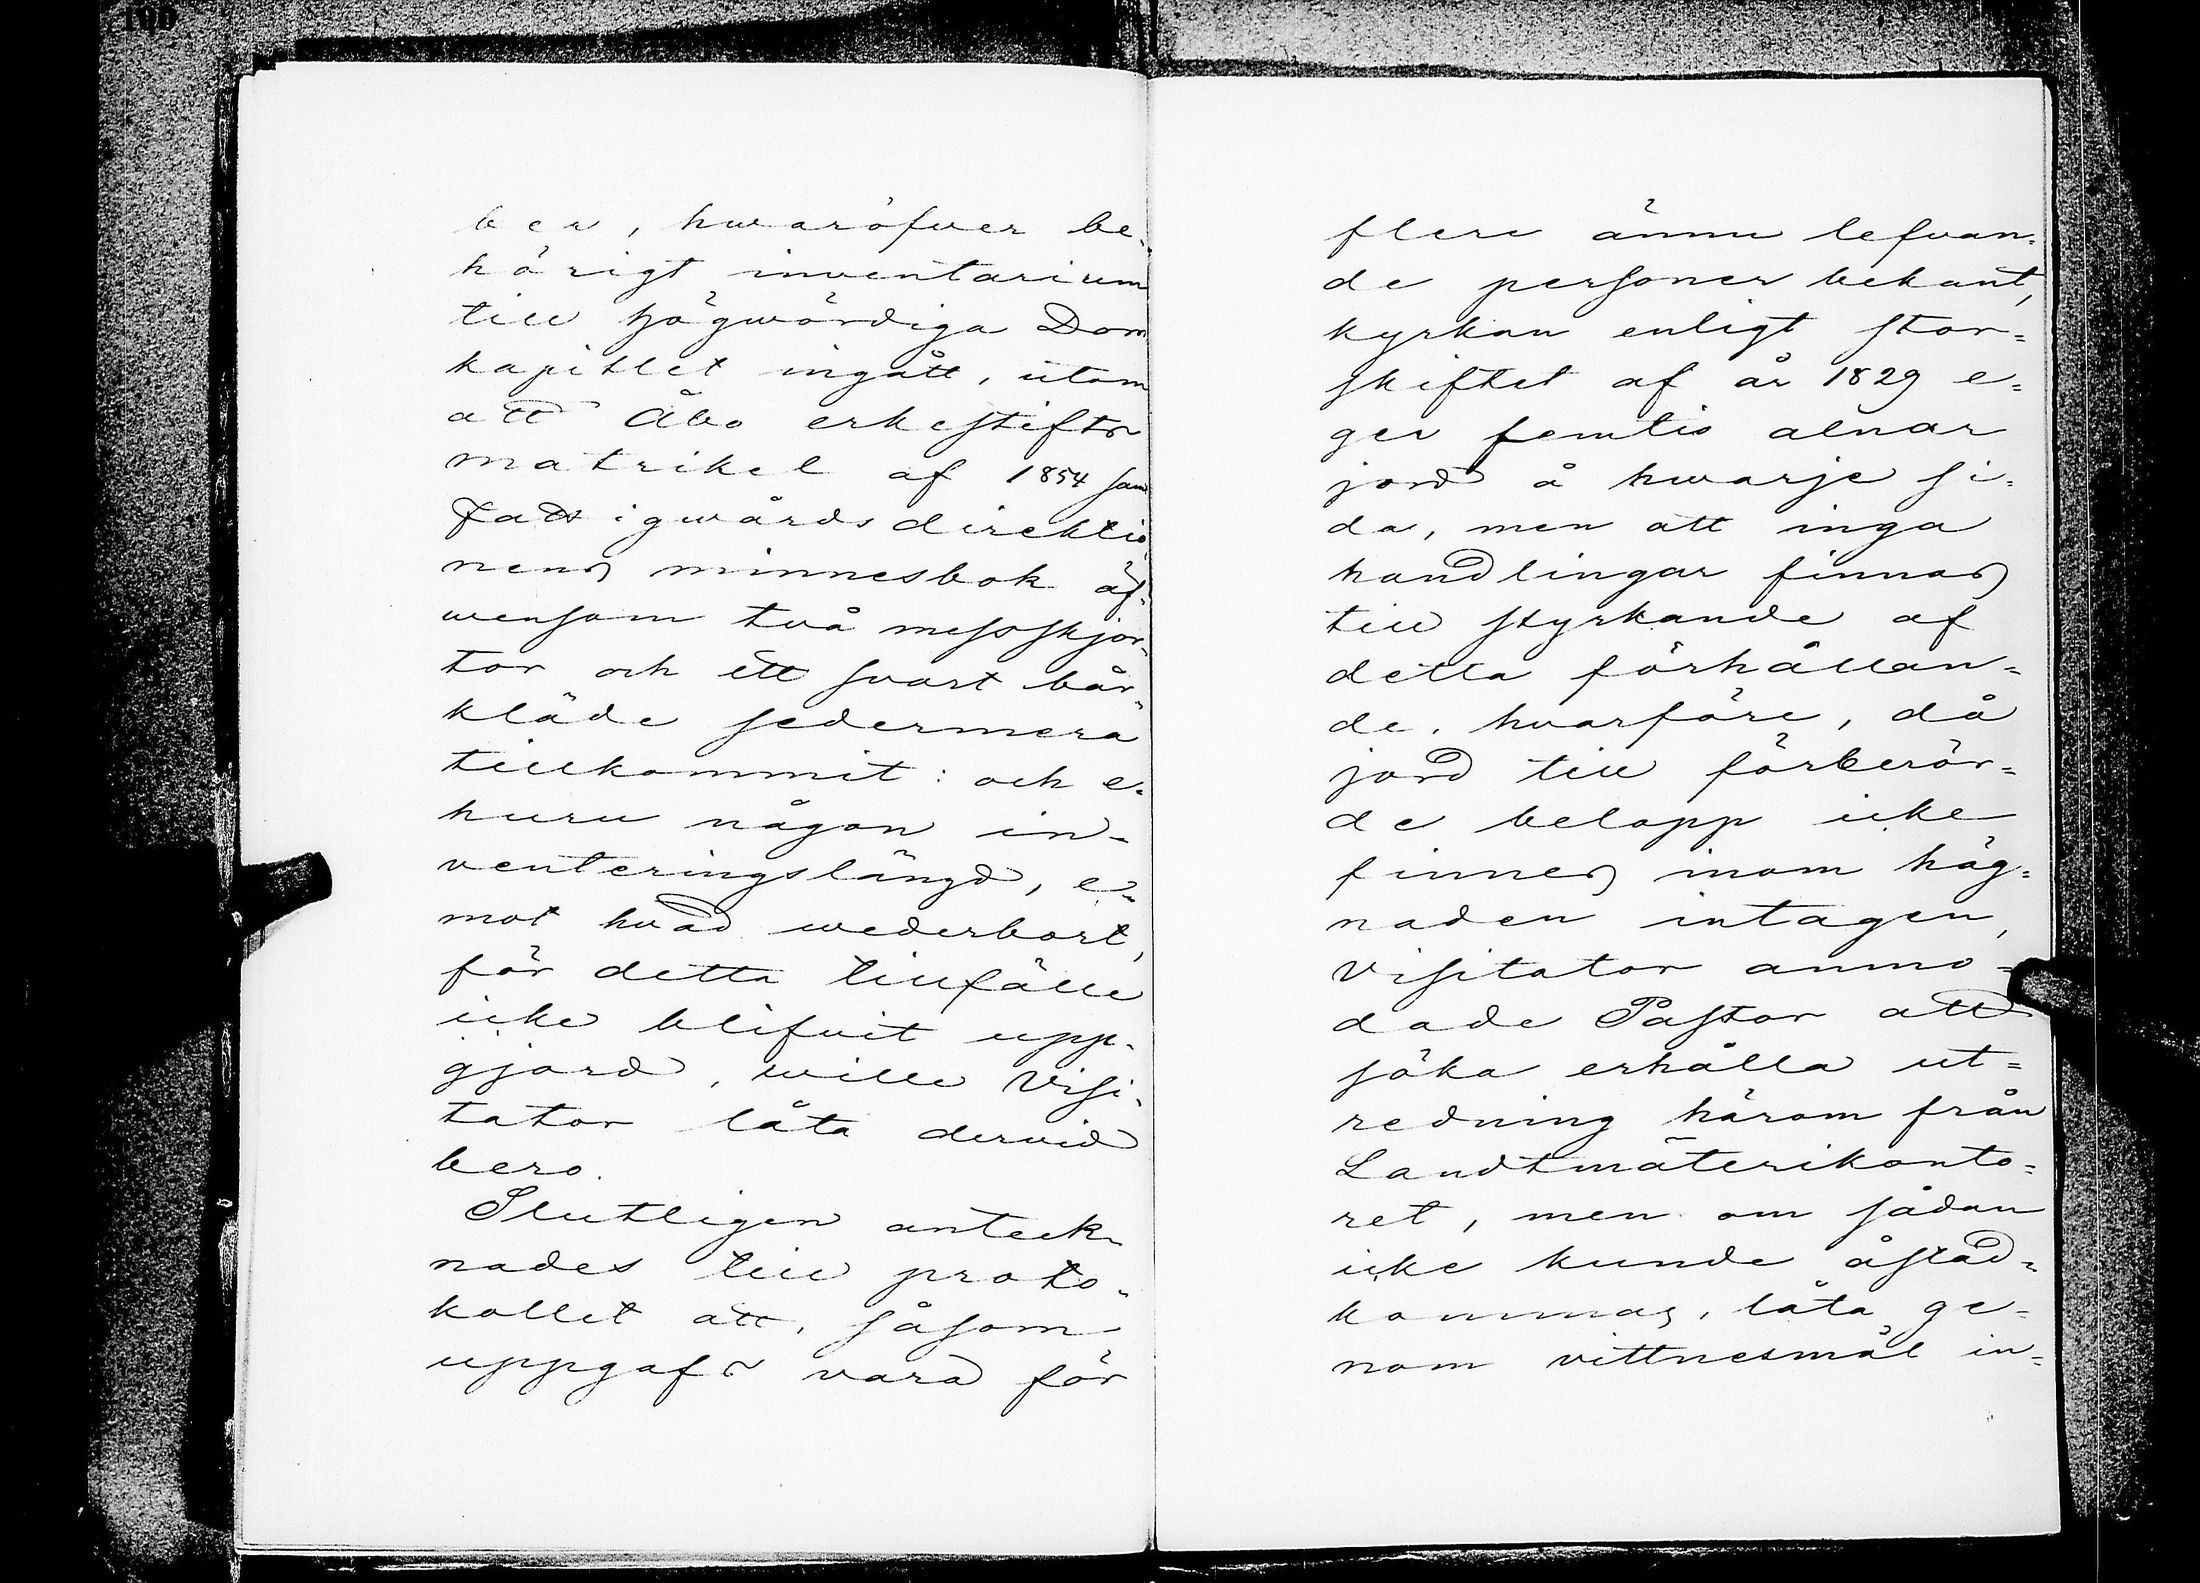 ber, hwaröfwer be-
hörigt inventarium
till högwördiga Dom
kapitlet ingått, utom
att Åbo erkestifts
matrikel af 1854 samt
Fattigwårdsdirektio-
nens minnesbok äf-
wensom två messskjor-
tor och ett svart bår-
kläde sedermera
tillkommit: och e-
huru någon in-
venteringslängd, e-
mot hvad wederbort,
för detta tillfälle
icke blifvit upp-
gjord, wille Visi-
tator låta dervid
bero.
Slutligen anteck-
nades till proto-
kollet att, såsom
uppgafs vara för
flere ännu lefvan-
de personer bekant,
kyrkan enligt stor-
skiftet af år 1829 e-
ger femtio alnar
jord å hwarje si-
da, men att inga
handlingar finnas
till styrkande af
detta förhållan-
de, hvarföre, då
jord till förberör-
de belopp icke
finnes inom häg-
naden intagen,
Visitator anmo-
dade Pastor att
söka erhålla ut-
redning härom från
Landtmäterikonto-
ret, men om sådan
icke kunde åstad-
kommas, låta ge-
nom vittnesmål in-